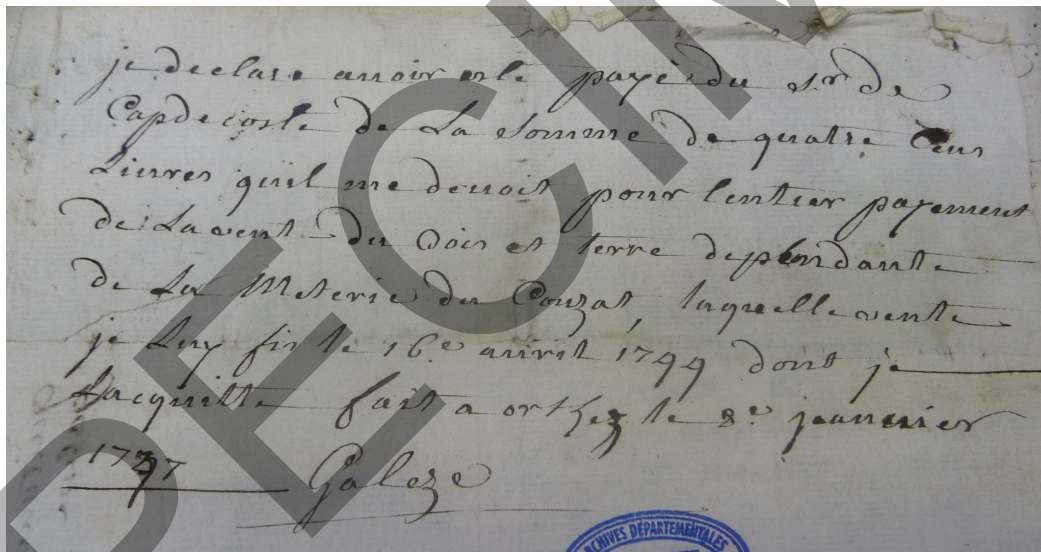 je declare avoir esté payé du Sr de
Capdecoste de La Somme de quatre Cens
Livres quil me devoit pour lentier payement
de La vente du Bois et terre dependante
de La Meterie du Couzat, laquelle vente
je Luy fis le 16e avril 1744 dont je
Lacquitte fait a orthez le 8e janvier
1747 Galeze
ARCHIVES DÉPARTEMENTALES
SPECIM